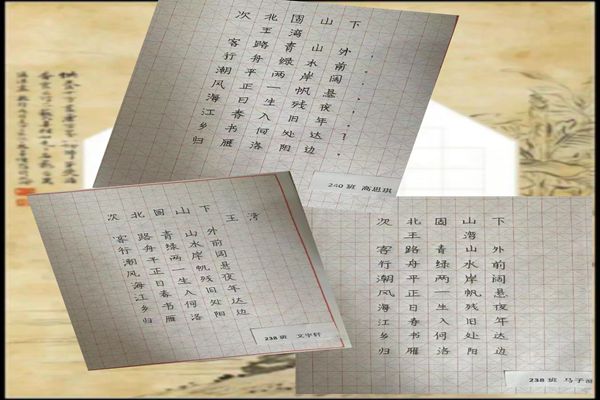 次北固山下
王湾
客路青山外，
行舟绿水前。
潮平两岸阔，
风正一帆悬。
海日生残夜，
江春入旧年。
乡书何处达？
归雁洛阳边。
240班 高思琪
次北固山下 王湾
客路青山外
行舟绿水前
潮平两岸阔
风正一帆悬
海日生残夜
江春入旧年
乡书何处达
归雁洛阳边
238班 文宇轩
次北固山下
王湾
客路青山外
行舟绿水前
潮平两岸阔
风正一帆悬
海日生残夜
江春入旧年
乡书何处达
归雁洛阳边
238班 马子